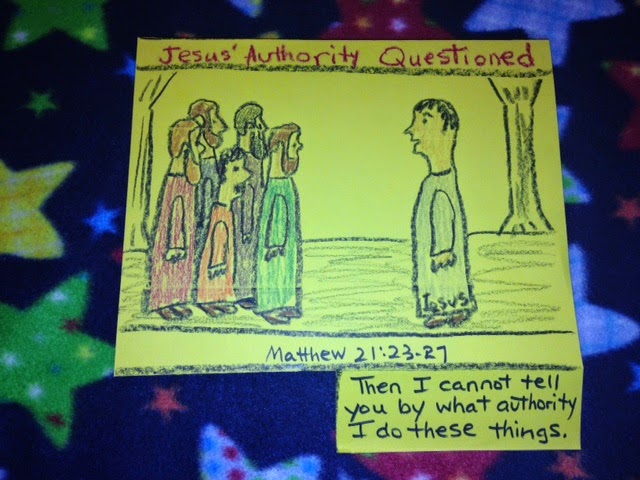 Jesus' Authority Questioned
Jesus
Matthew 21:23-27
Then I cannot tell
you by what authority
I do these things.